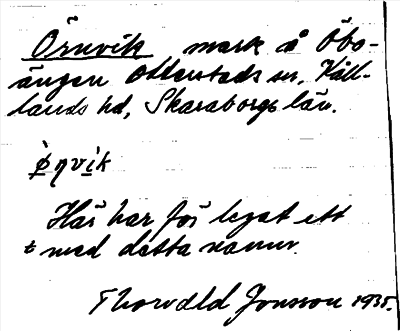 Örnvik mark å Öbo-
ängen Ottestads sn. Kåll-
lands hd, Skaraborgs län.
Här har för legat ett
t med detta namn.
Thorvald Jonsson 1935.